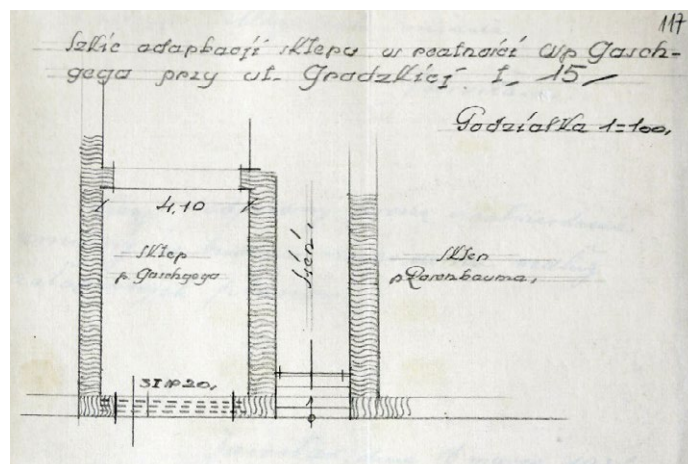 117
Szkic adaptacji sklepu w realności Wp Gasch-
gega przy ul. Grodzkiej L. 15
Podziałka 1=100.
4,10
sień.
sklep
p. Gaschgega
sklep
p. Rosenbauma.
3 I No 20.